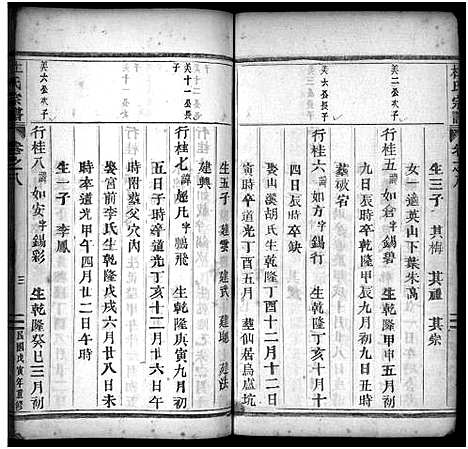 杜氏宗譜
卷之八
生三子 其梅 其禋 其宗
女一適英山下葉朱萬
美二公次子
行桂五諱如倉字錫碧 生乾隆甲申五月初
九日辰時卒乾隆甲辰九月初九日丑時
墓破宕
美六公長子
行桂六諱如方字錫行 生乾隆丁亥十月十
四日辰時卒缺
娶山溪胡氏生乾隆丁酉十二月十二日
寅時卒道光丁酉五月 墓仙居烏盧坑
生五子 建雲 建武 建地 建法
建興
美十一公長子
行桂七諱超凡字鵬飛 生乾隆庚寅九月初
五日子時卒道光丁亥十二月廿六日午
時附墓父穴內
娶宮前李氏生乾隆戊戌六月廿八日未
時卒道光甲午四月廿二日午時
生一子 李鳳
美六公次子
行桂八諱如安字錫彩 生乾隆癸巳三月初
杜氏宗譜
卷之八
三
民國戊寅年重修